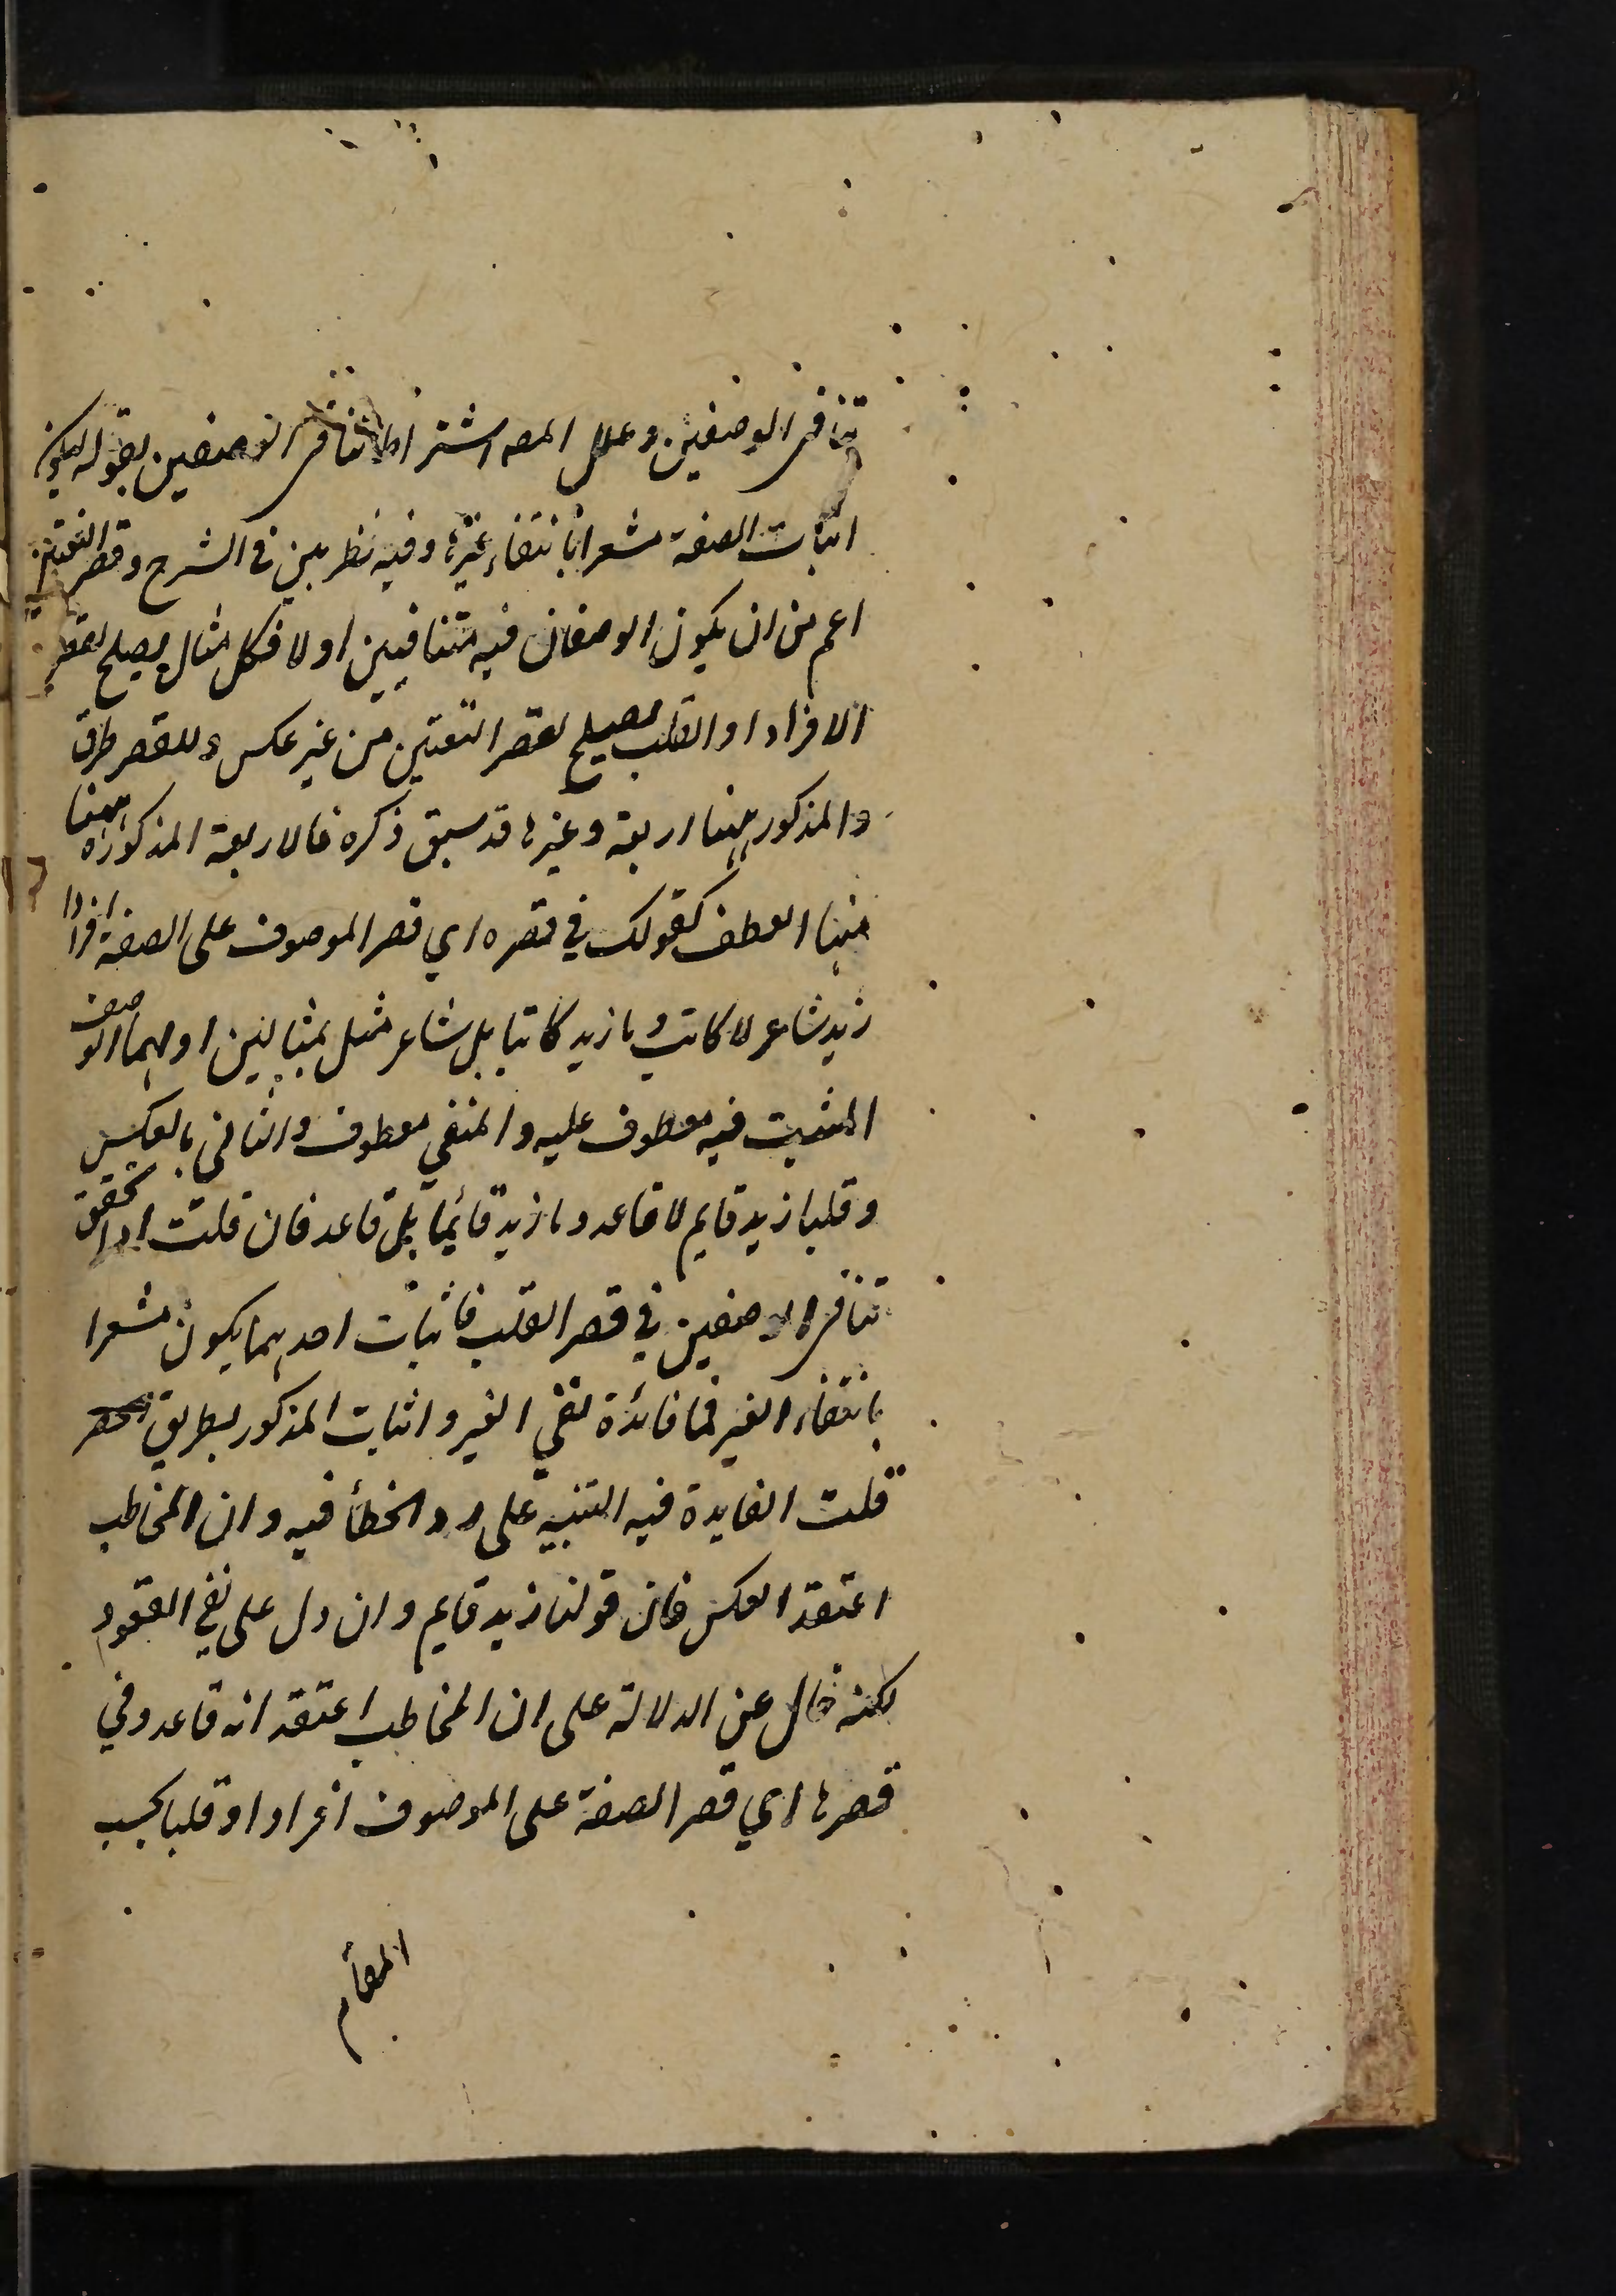 تنافى الوصفين وعلل المصه اشتراط تنافى الوصفين بقوله ليكون
اثبات الصفة مشعرا بانتفاء غيرها وفيه نظر بين في الشرح وقصر التعيين
اعم من ان يكون الوصفان فيه متنافيين اولا فكل مثال يصلح لقصر
الافراد او القلب يصلح لقصر التعيين من غير عكس وللقصر طرق
والمذكور ههنا اربعة وغيرها قد سبق ذكره فالاربعة المذكورة ههنا
منها العطف كقولك في قصره اي قصر الموصوف على الصفة افرادا
زيد شاعر لا كاتب وما زيد كاتبا بل شاعر مثل بمثالين اولهما الوصف
المثبت فيه معطوف عليه والمنفي معطوف والثانى بالعكس
وقلبا زيد قايم لا قاعد وما زيد قائما بل قاعد فان قلت اذا تحقق
تنافى الوصفين في قصر القلب فاثبات احدهما يكون مشعرا
بانتفاء الغير فما فائدة نفي الغير واثبات المذكور بطريق الحصر
قلت الفايدة فيه التنبيه على رد الخطأ فيه وان المخاطب
اعتقد العكس فان قولنا زيد قايم وان دل على نفي القعود
لكنه خال عن الدلالة على ان المخاطب اعتقد انه قاعد وفي
قصرها اي قصر الصفة على الموصوف افرادا او قلبا بحسب
المقام